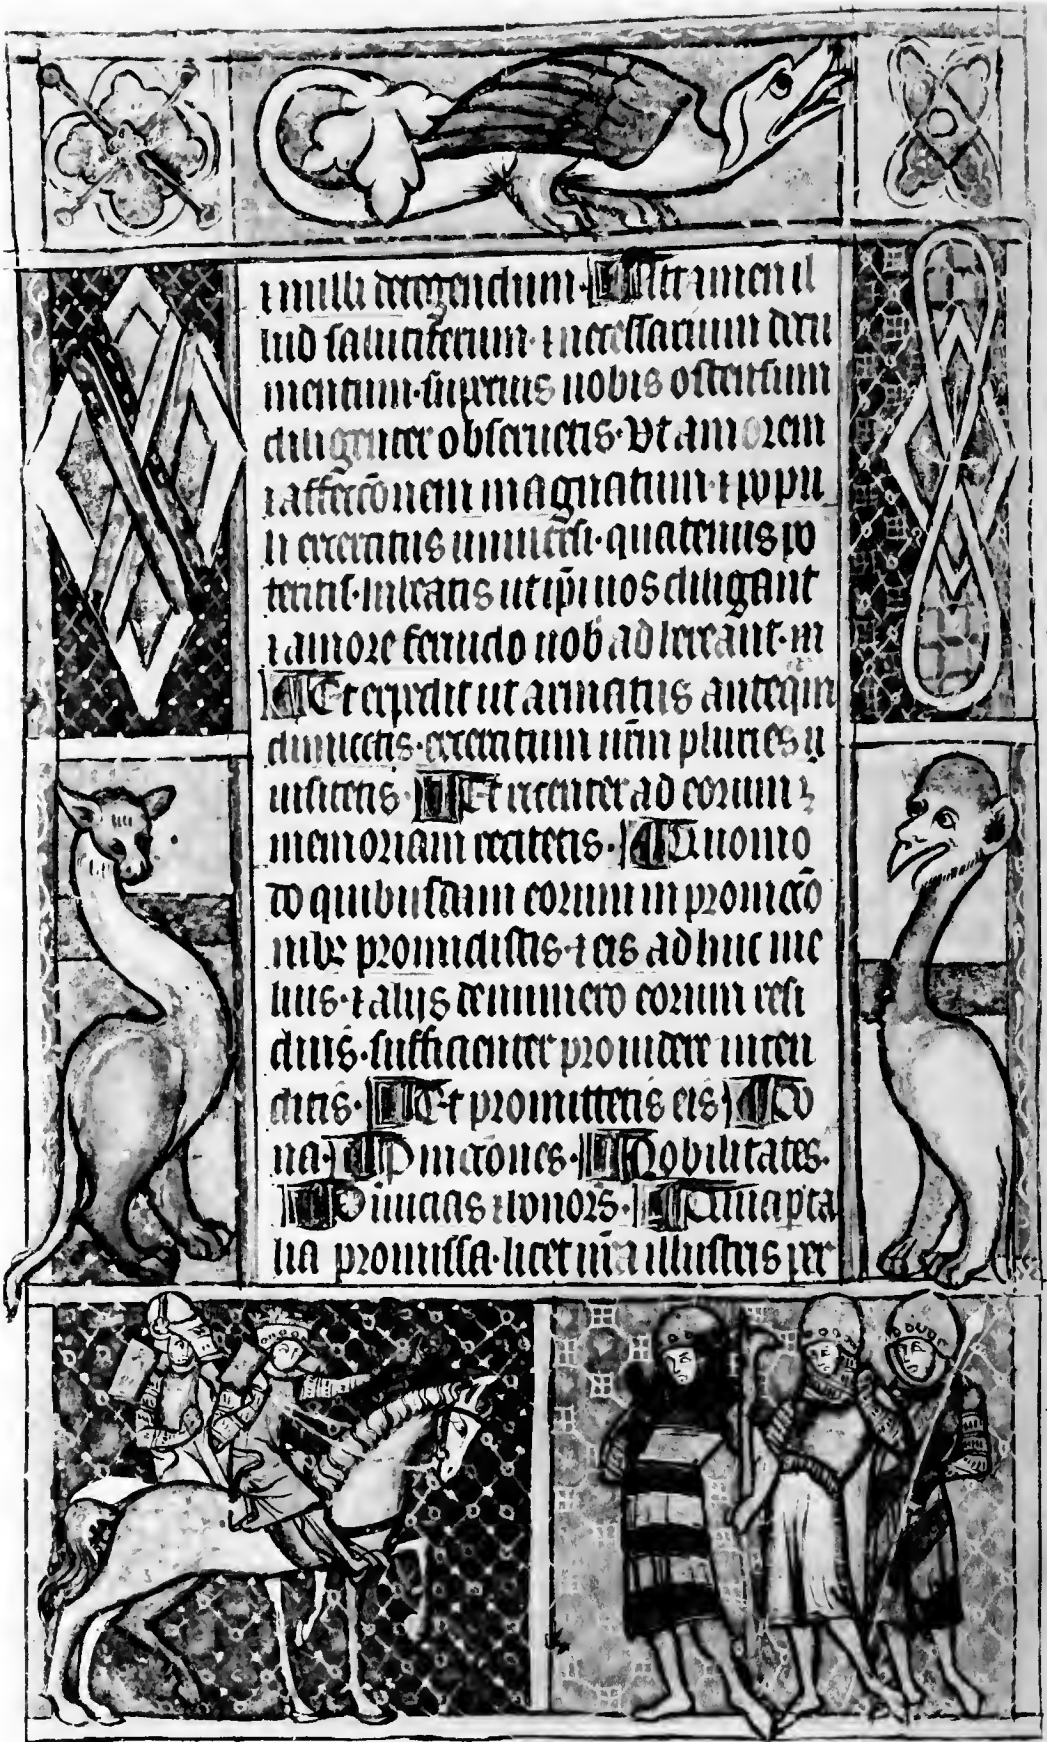 ⁊ nulli detegendum. ¶ Attamen il
lud salutiferum. ⁊ necessarium docu
mentum. superius uobis ostensum
diligenter obseruetis. Vt amorem
⁊ affecc̄onem magnatum. ⁊ popu
li exercitus uniuersi. quatenus po
teritis. habeatis ut ip̄i uos diligant
⁊ amore feruido uob̄ adhereant.
¶ Et expedit ut armatus anteq̄m
dimicetis. exercitum ur̄m pluries
uisitetis. ¶ Et recenter ad eorum
memoriam recitetis. ¶ Quomo
do quibusdam eorum in promocc̄o
nibꝫ prouidistis. ⁊ eis adhuc me
lius. ⁊ alijs de numero eorum resi
duis. sufficienter prouidere inten
ditis. ¶ Et promittetis eis ¶ Do
na. ¶ Nobilitates.
¶ Diuicias ⁊ honores. ¶
lia promissa. licet ur̄a illustris per